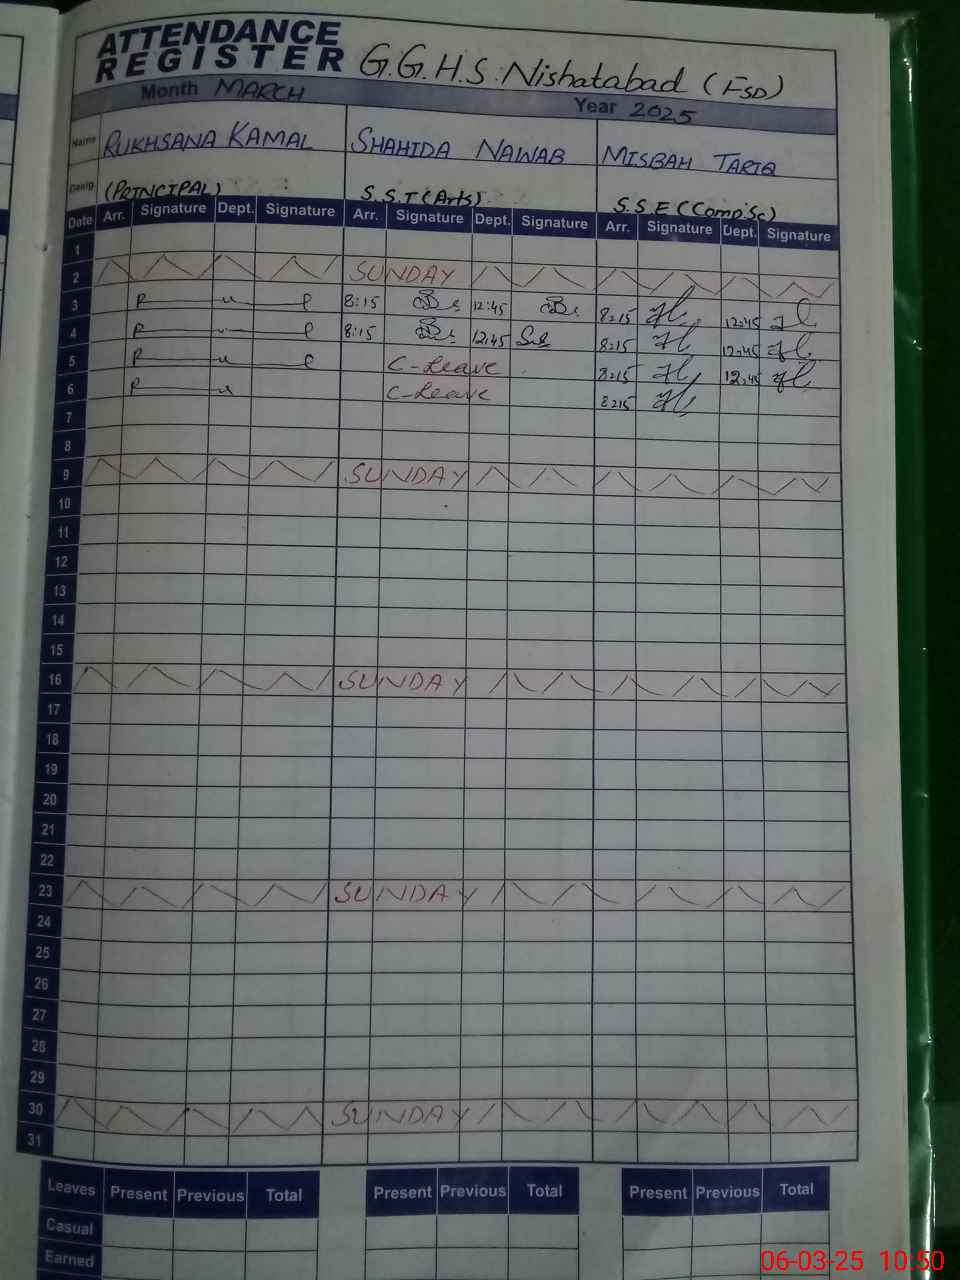 ATTENDANCE
REGISTER G.G.H.S. Nishatabad (FSD)
Month MARCH Year 2025
Name RUKHSANA KAMAL SHAHIDA NAWAB MISBAH TARIQ
Desig (PRINCIPAL) S.S.T (Arts) S.S.E (Comp.Sc)
Date Arr. Signature Dept. Signature Arr. Signature Dept. Signature Arr. Signature Dept. Signature
1
2 SUNDAY
3 P 8:15 12:45 8:15 12:45
4 P 8:15 12:45 8:15 12:45
5 P C-Leave 8:15 12:45
6 P C-Leave 8:15
7
8
9 SUNDAY
10
11
12
13
14
15
16 SUNDAY
17
18
19
20
21
22
23 SUNDAY
24
25
26
27
28
29
30 SUNDAY
31
Leaves Present Previous Total Present Previous Total Present Previous Total
Casual
Earned
06-03-25 10:50